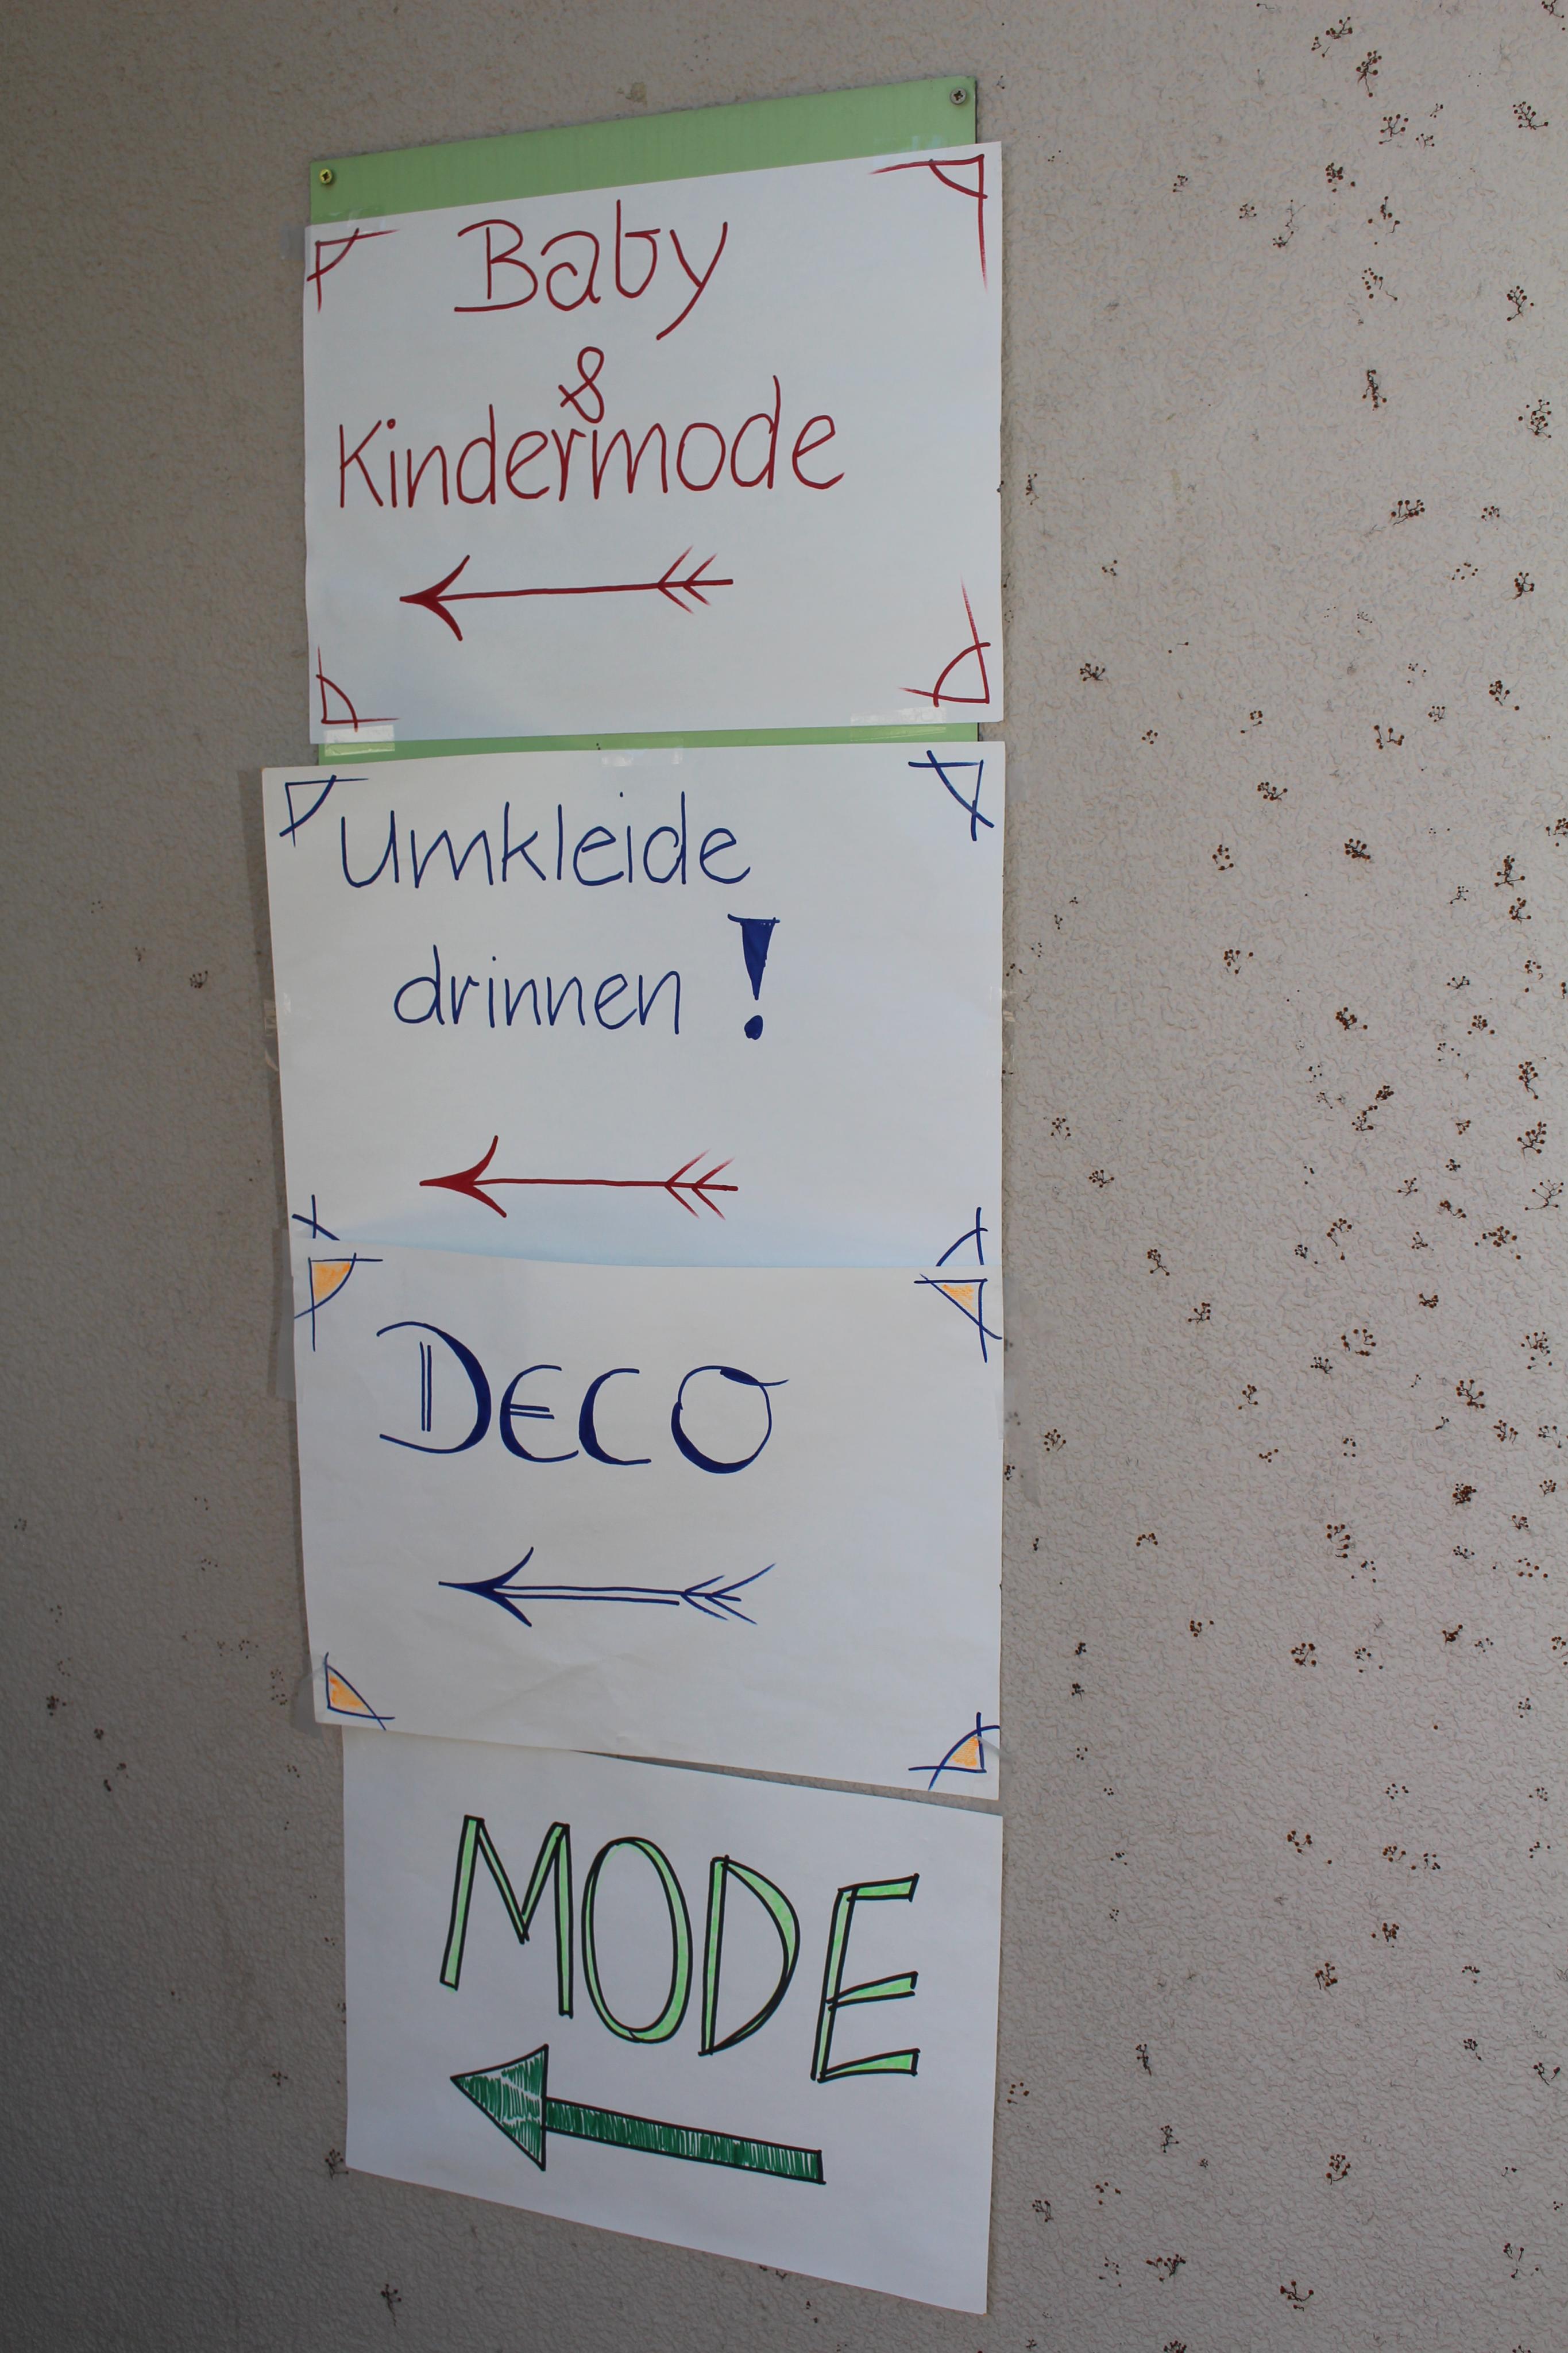 Baby
&
Kindermode
Umkleide
drinnen !
DECO
MODE